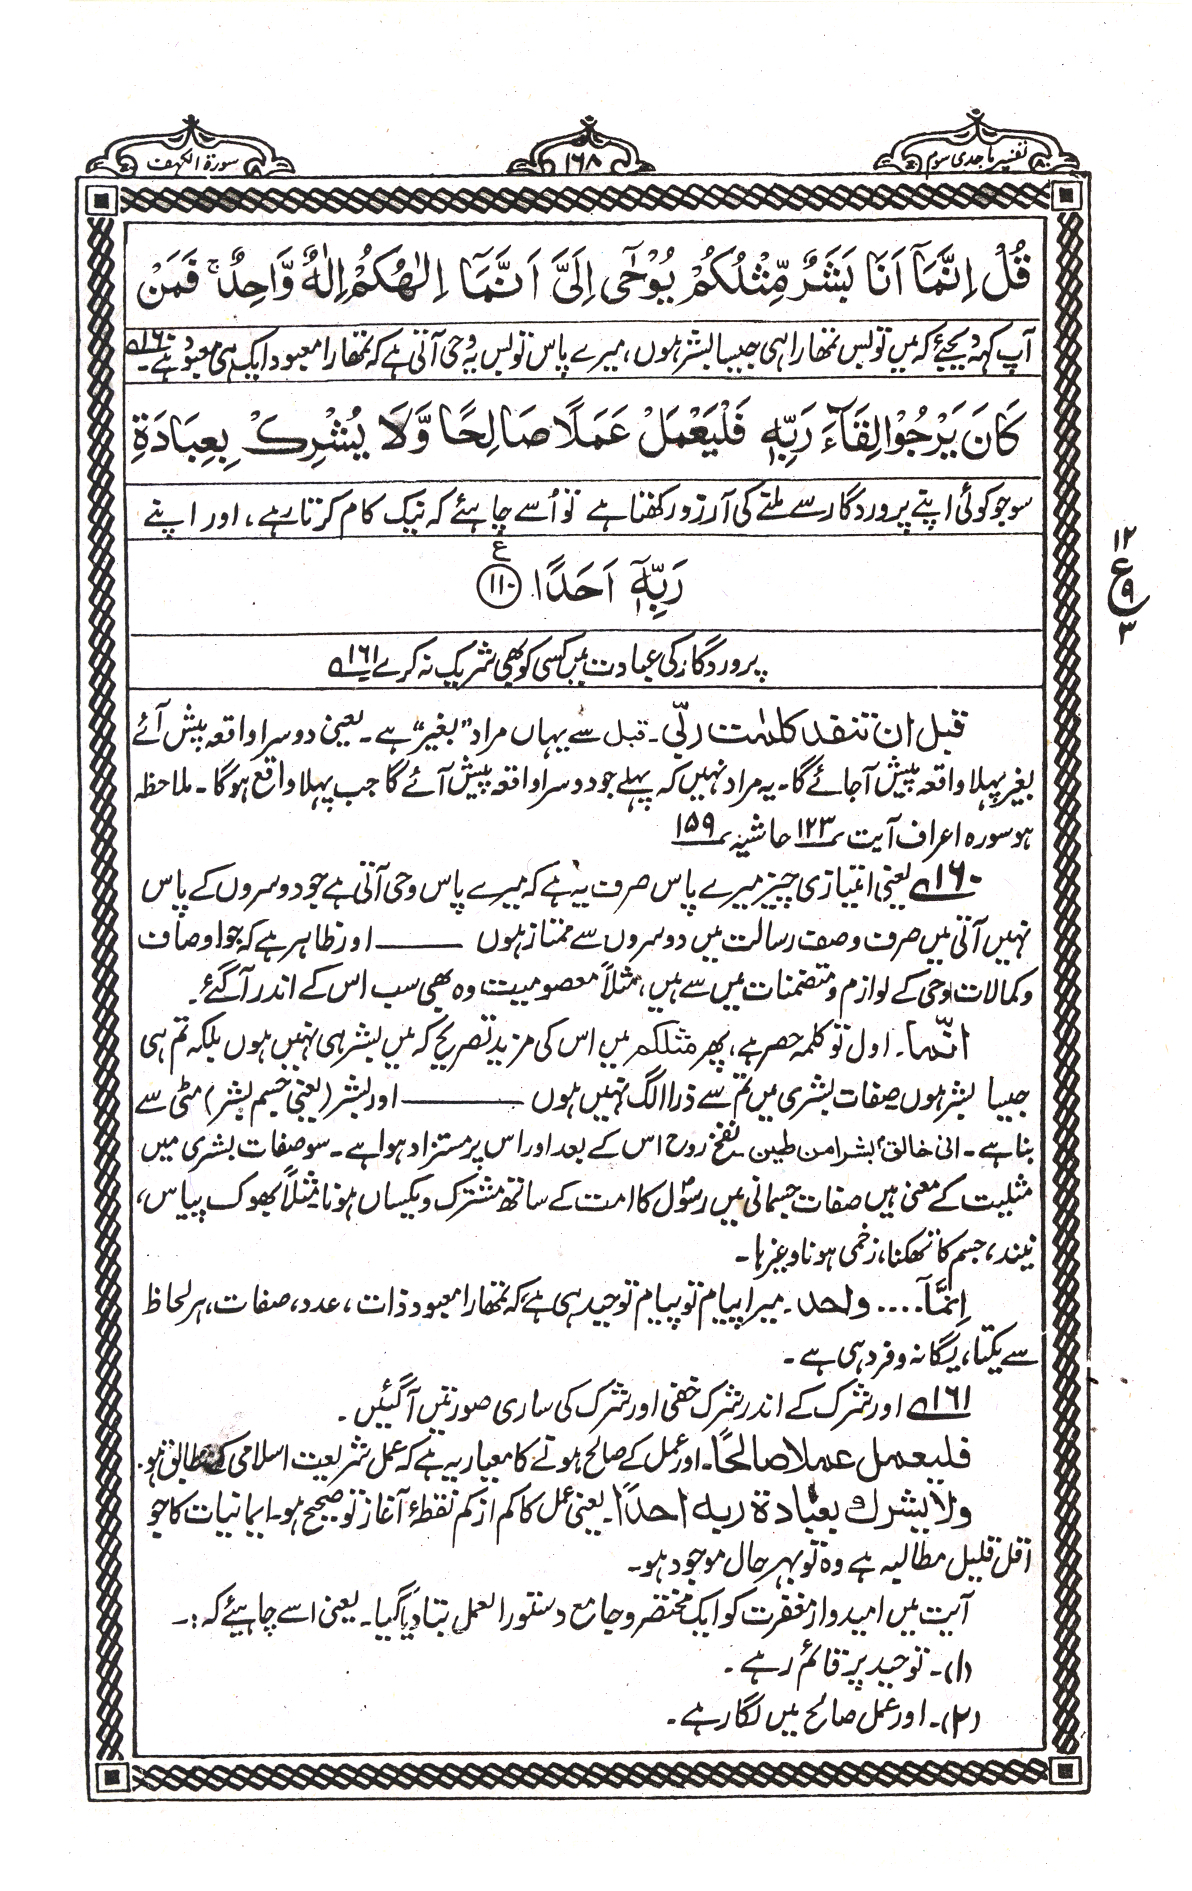 تفسیر ماجدی سوم
۱۶۸
سورۃ الکہف
قُلْ اِنَّمَآ اَنَا بَشَرٌ مِّثْلُكُمْ يُوْحٰٓى اِلَىَّ اَنَّمَآ اِلٰهُكُمْ اِلٰهٌ وَّاحِدٌ ۚ فَمَنْ
آپ کہہ دیجئے کہ میں تو بس تمھارا ہی جیسا بشر ہوں، میرے پاس تو بس یہ وحی آتی ہے کہ تمھارا معبود ایک ہی معبود ہے ۱۶۰؎
كَانَ يَرْجُوْا لِقَآءَ رَبِّهٖ فَلْيَعْمَلْ عَمَلًا صَالِحًا وَّلَا يُشْرِكْ بِعِبَادَةِ
سو جو کوئی اپنے پروردگار سے ملنے کی آرزو رکھتا ہے تو اُسے چاہئے کہ نیک کام کرتا رہے، اور اپنے
رَبِّهٖٓ اَحَدًا ﴿۱۱۰﴾ ع
۱۲
ع
۹
۳
پروردگار کی عبادت میں کسی کو بھی شریک نہ کرے ۱۶۱؎
قبل ان تنفد کلمٰت ربّی۔ قبل سے یہاں مراد ”بغیر“ ہے۔ یعنی دوسرا واقعہ پیش آئے
بغیر پہلا واقعہ پیش آجائے گا۔ یہ مراد نہیں کہ پہلے جو دوسرا واقعہ پیش آئے گا جب پہلا واقع ہوگا۔ ملاحظہ
ہو سورہ اعراف آیت ۱۲۳ حاشیہ ۱۵۹
۱۶۰؎ یعنی امتیازی چیز میرے پاس صرف یہ ہے کہ میرے پاس وحی آتی ہے جو دوسروں کے پاس
نہیں آتی میں صرف وصف رسالت میں دوسروں سے ممتاز ہوں ——— اور ظاہر ہے کہ جو اوصاف
وکمالات وحی کے لوازم ومتضمنات میں سے ہیں، مثلاً معصومیت وہ بھی سب اس کے اندر آگئے۔
انّما۔ اول تو کلمہ حصر ہے، پھر مثلکم میں اس کی مزید تصریح کہ میں بشر ہی نہیں ہوں بلکہ تم ہی
جیسا بشر ہوں صفات بشری میں تم سے ذرا الگ نہیں ہوں ——— اور بشر (یعنی جسم بشر) مٹی سے
بنا ہے۔ انی خالق بشرا من طین۔ نفخ روح اس کے بعد اور اس پر مستزاد ہوا ہے۔ سو صفات بشری میں
مثلیت کے معنی ہیں صفات جسمانی میں رسولؐ کا امت کے ساتھ مشترک ویکساں ہونا مثلاً بھوک پیاس،
نیند، جسم کا تھکنا، زخمی ہونا وغیرہا۔
اِنَّمَآ .... واحد۔ میرا پیام تو پیام توحید ہی ہے کہ تمھارا معبود ذات، عدد، صفات، ہر لحاظ
سے یکتا، یگانہ وفرد ہی ہے۔
۱۶۱؎ اور شرک کے اندر شرک خفی اور شرک کی ساری صورتیں آگئیں۔
فلیعمل عملا صالحًا۔ اور عمل کے صالح ہونے کا معیار یہ ہے کہ عمل شریعت اسلامی کے مطابق ہو۔
ولا یشرک بعبادۃ ربہ احدًا۔ یعنی عمل کا کم از کم نقطۂ آغاز تو صحیح ہو۔ ایمانیات کا جو
اقل قلیل مطالبہ ہے وہ تو بہرحال موجود ہو۔
آیت میں امیدوار مغفرت کو ایک مختصر وجامع دستور العمل بتا دیا گیا۔ یعنی اسے چاہئے کہ:۔
(۱)۔ توحید پر قائم رہے۔
(۲)۔ اور عمل صالح میں لگا رہے۔